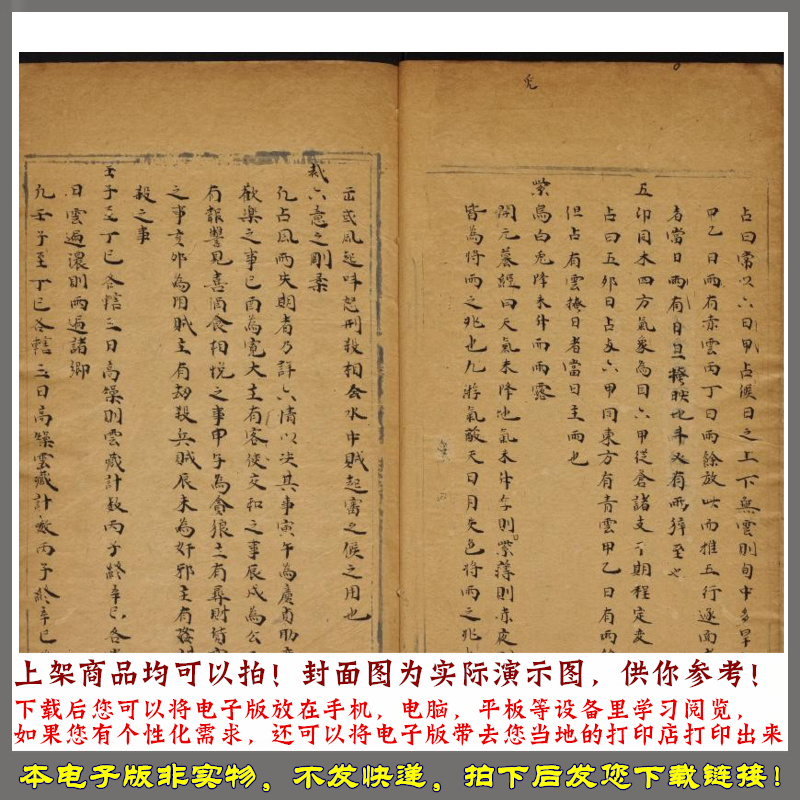 占曰常以六日甲占候日之上下無雲則旬中多旱
甲乙日雨有赤雲丙丁日雨餘放此而推五行逐
者當日雨有日旦掩映也
五卯同木四方氣象為目六甲從蒼諸支
占曰五卯日占交六甲同東方有青雲甲乙日有雨
但占有雲掩日者當日主雨也
紫烏白兎降未升而雨露
開元纂經曰天氣未降地氣未升
則紫薄則赤
皆為將雨之兆也凡游氣蔽天日月失色將雨之兆
風起
刑殺相会水中賊起審之候之用也
裁六意之剛柔
凡占風雨失期者乃詳六情以决其事寅午為廣貞
歡樂之事巳酉為寬大主有客使交和之事辰戌為公
有報讐見喜酒食相悅之事申子為貪狼主有尋財
之事亥卯為阴賊主有劫殺兵賊辰未為奸邪主有
殺之事
壬子至丁巳各轄三日高燥則雲藏計数丙子終辛巳各
日雲過濃則雨遍諸鄉
凡壬子至丁巳各轄三日高燥雲藏計数丙子終辛巳
上架商品均可以拍！封面图为实际演示图，供你参考！
下载后您可以将电子版放在手机，电脑，平板等设备里学习阅览，
如果您有个性化需求，还可以将电子版带去您当地的打印店打印出来
本电子版非实物，不发快递，拍下后发您下载链接！